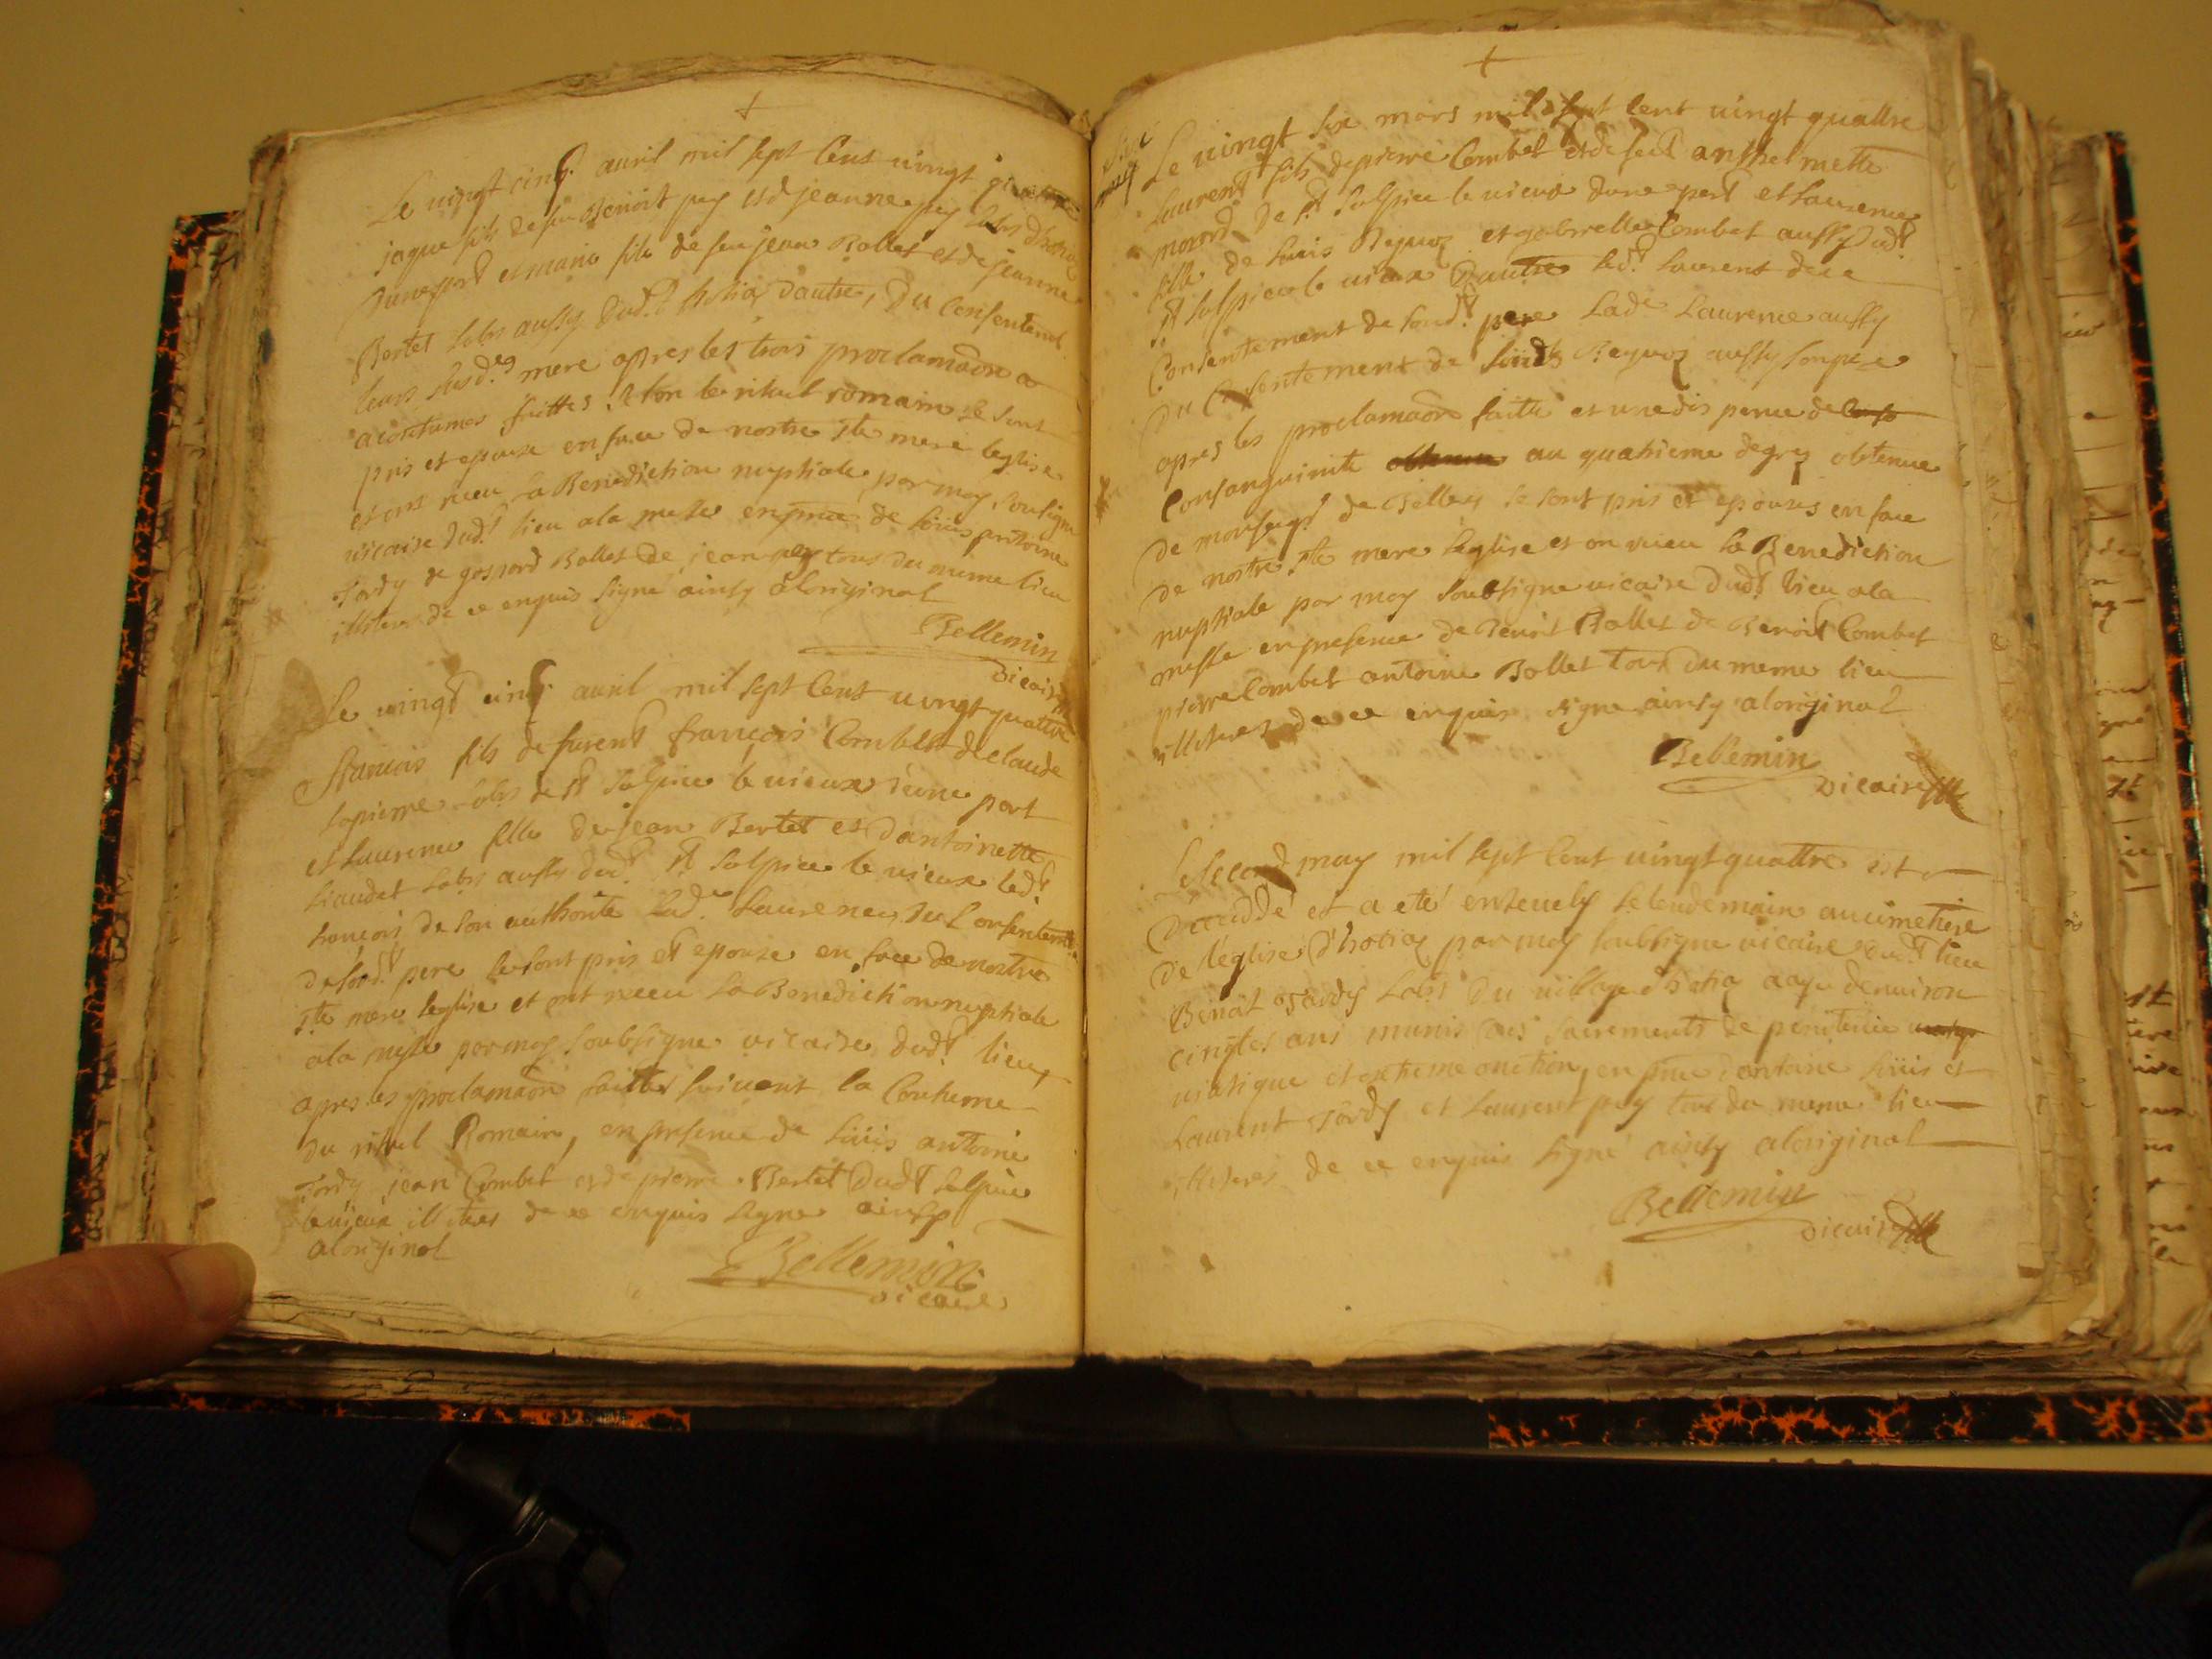 Le vingt cinq avril mil sept cens vingt quattre
jaque fils de feu Benoit puy et d jeanne puy labrs d'hotiaz
d'une part et marie fille de feu jean Ballet et de jeanne
Bertet labrs aussy dud.t hotiaz d'autre, Du Consentemt
leurs susd.es mere apres les trois proclamaõn a
acoutumes faittes selon le rituel romain se sont
pris et epouse en face de nostre Ste mere leglise
et ont receu la Benediction nuptiale par moy soussigne
vicaire dud.t lieu a la messe en pnce de Loüis antoine
Tardy de gaspard Ballet de jean puy tous du meme lieu
illiteres de ce enquis signé ainsy aloriginal
Bellemin
vicaire
Le vingt cinq avril mil sept Cens vingt quattre
francois fils de furent françois Combet et de Claude
lapierre labrs de St Sulpice le vieux d'une part
et Laurence fille de jean Bertet et d'antoinette
Liaudet labrs aussy dud.t St Sulpice le vieux led.t
francois de son authorité lad.e Laurence, du Consentemt
de sond.t pere se sont pris et epouse en face de nostre
Ste mere leglise et ont receu la Benediction nuptiale
a la messe par moy soubsigne vicaire dud.t lieu
apres les proclamaõn faittes suivant la Coutume
du rituel Romain, en presence de Loüis antoine
Tardy jean Combet et de pierre Bertet dud.t Sulpice
le vieux illiteres de ce enquis signe ainsy
aloriginal
Bellemin
vicaire
Le vingt six mars mil sept Cent vingt quattre
Laurent fils de pierre Combet et de feue anthelmette
morard de St Sulpice le vieux dune part et Laurence
fille de Louis Reynoz et gabrielle Combet aussy dud.t
St Sulpice le vieux d'autre led.t Laurent de
Consentement de sond.t pere Lad.e Laurence aussy
du Consentement de Loüis Reynoz aussy son pere
apres les proclamaõn faitte et une dispence de
Consanguinite au quatrieme degrez obtenue
de monseig.r de Belley se sont pris et epouses en face
de nostre Ste mere Leglise et on receu la Benediction
nuptiale par moy soubsigne vicaire dud.t lieu a la
messe en presence de Benoit Ballet de Benoit Combet
pierre Combet antoine Ballet tous du meme lieu
illiteres de ce enquis signe ainsy aloriginal
Bellemin
vicaire
Le second may mil sept Cent vingt quattre est
decedde et a eté ensevely le lendemain au cimetiere
de l'eglise d'hotiaz par moy soubsigne vicaire dud.t lieu
Benoit Tardy Labrs du village d'hotiaz aage d'environ
cinqte ans munis des sacrements de penitence
viatique et extreme onction, en pnce d'antoine Loüis et
Laurent Tardy et Laurent puy tous du meme lieu
illiteres de ce enquis signé ainsy aloriginal
Bellemin
vicaire